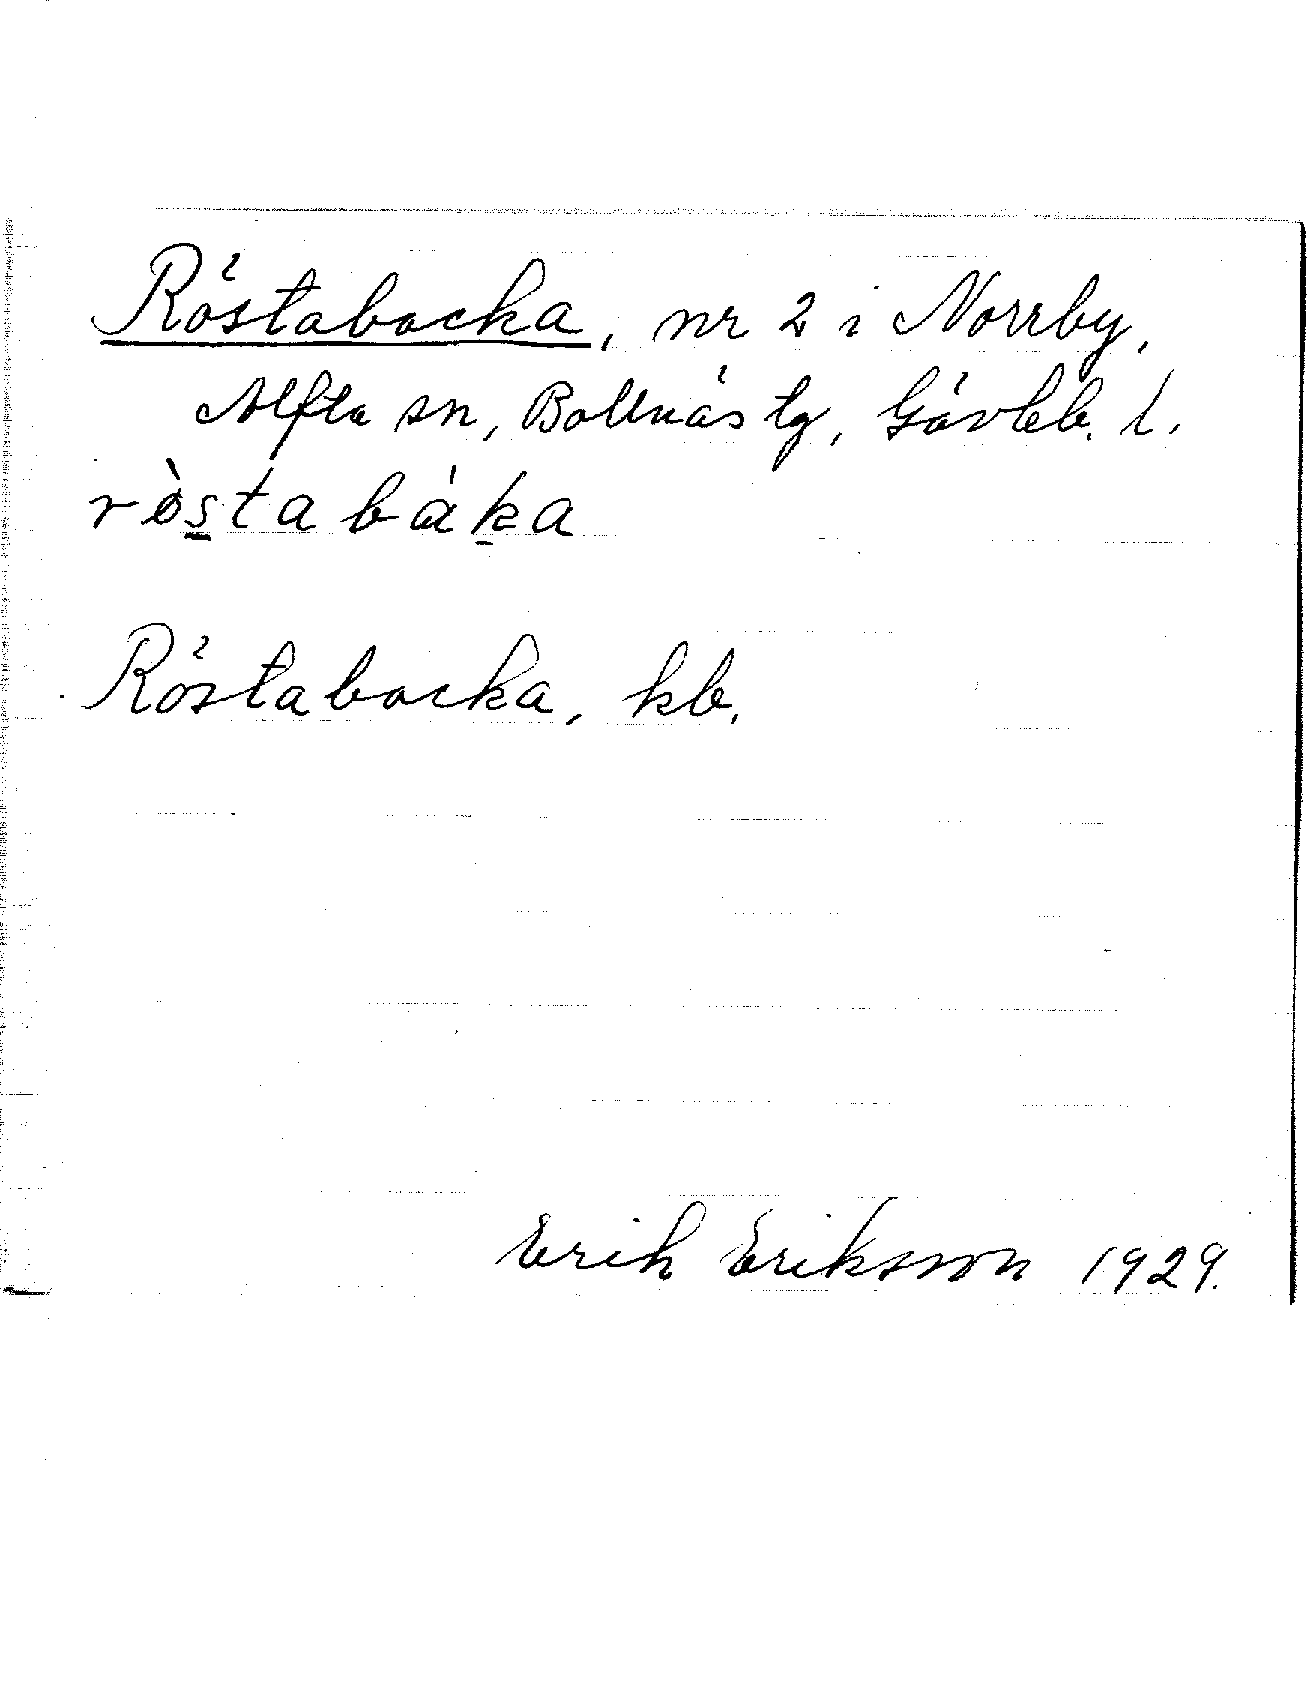 Röstabacka, nr 2 i Norrby,
Alfta sn, Bollnäs tg, Gävleb. l.
ròstabàka
Röstabacka, kb.
Erik Eriksson 1929.